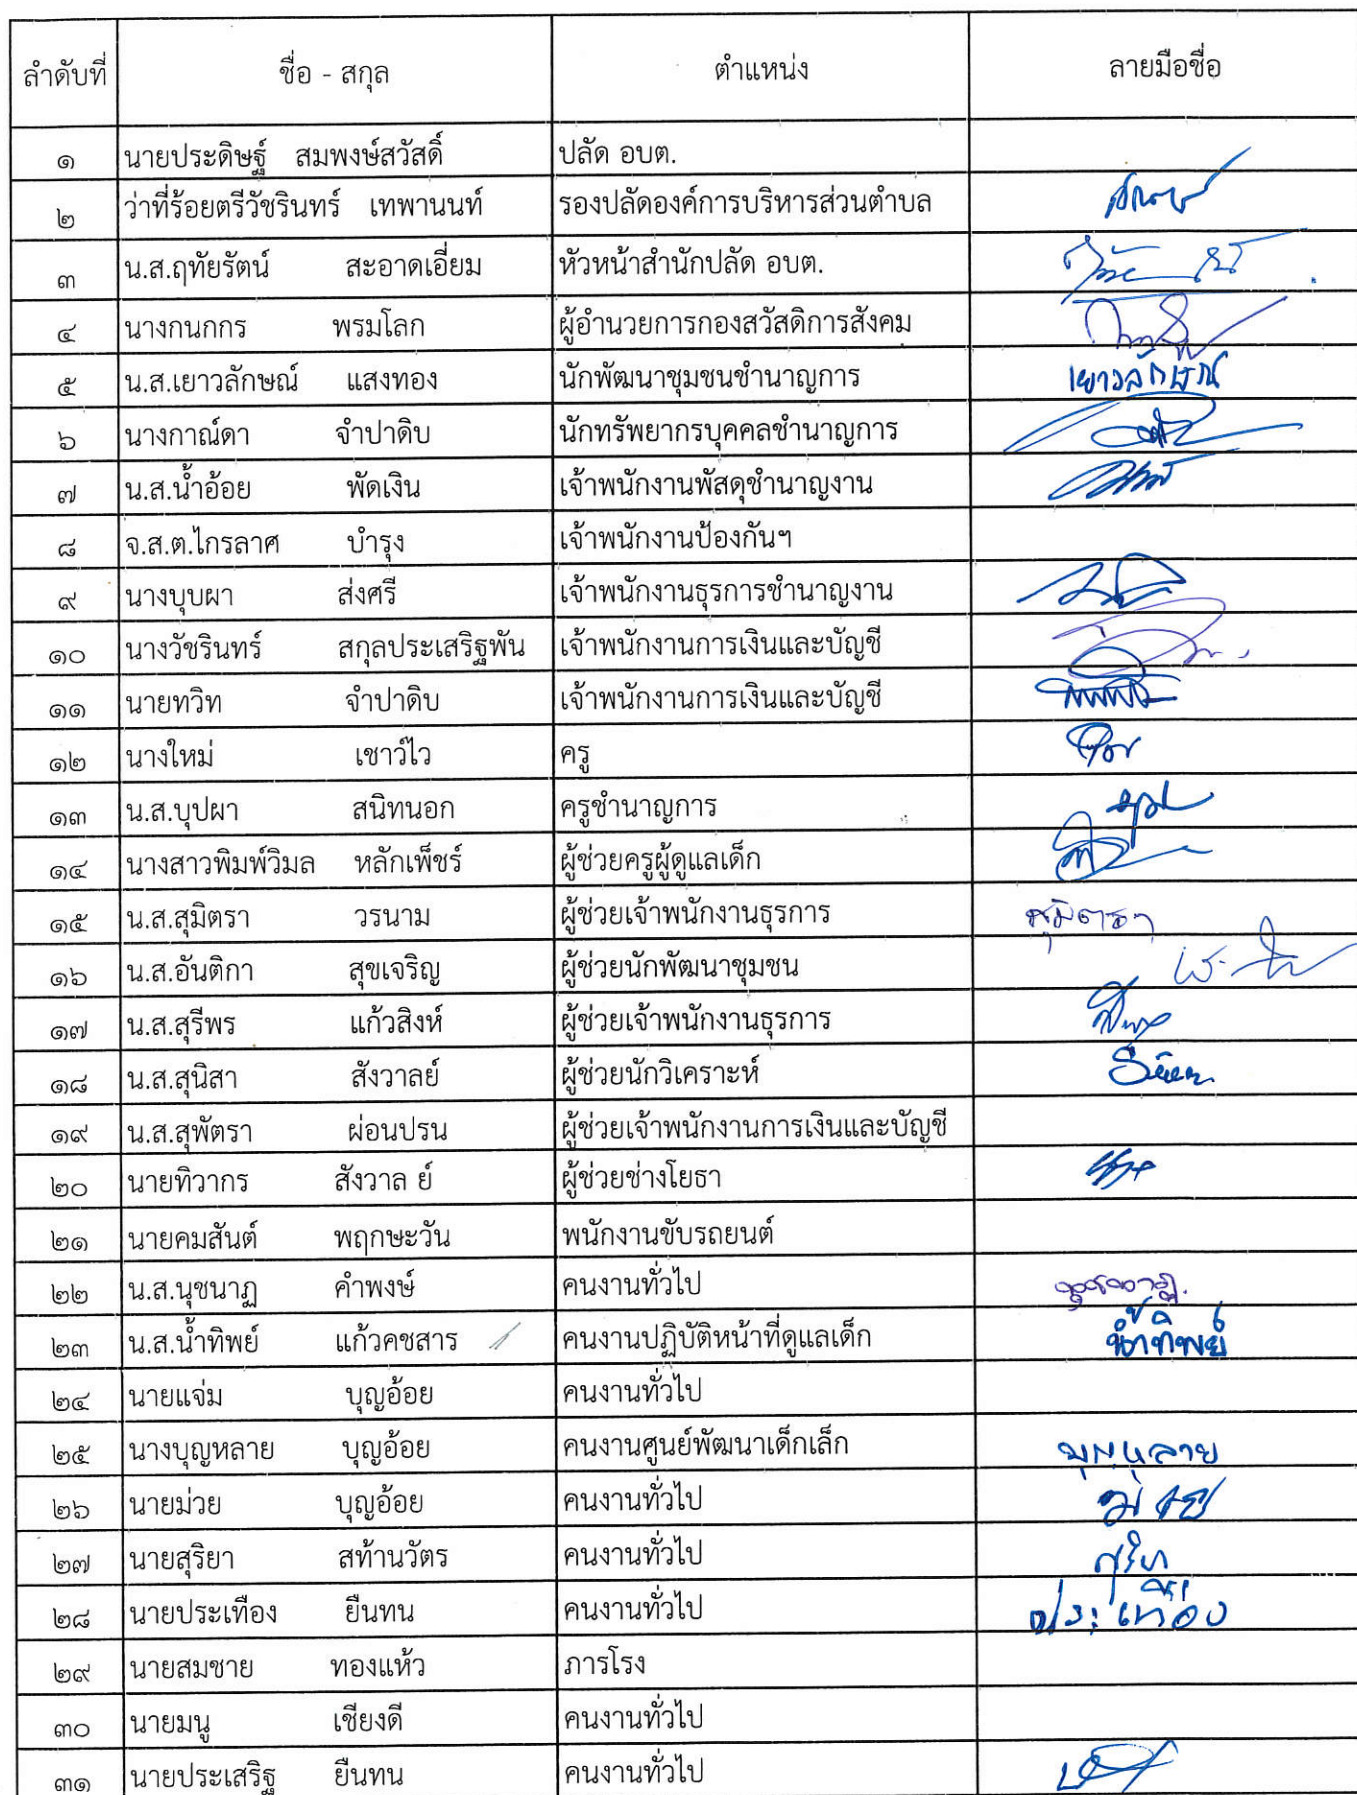 ลำดับที่ ชื่อ - สกุล ตำแหน่ง ลายมือชื่อ
๑ นายประดิษฐ์ สมพงษ์สวัสดิ์ ปลัด อบต.
๒ ว่าที่ร้อยตรีวัชรินทร์ เทพานนท์ รองปลัดองค์การบริหารส่วนตำบล
๓ น.ส.ฤทัยรัตน์ สะอาดเอี่ยม หัวหน้าสำนักปลัด อบต.
๔ นางกนกกร พรมโลก ผู้อำนวยการกองสวัสดิการสังคม
๕ น.ส.เยาวลักษณ์ แสงทอง นักพัฒนาชุมชนชำนาญการ เยาวลักษณ์
๖ นางกาณ์ดา จำปาดิบ นักทรัพยากรบุคคลชำนาญการ
๗ น.ส.น้ำอ้อย พัดเงิน เจ้าพนักงานพัสดุชำนาญงาน
๘ จ.ส.ต.ไกรลาศ บำรุง เจ้าพนักงานป้องกันฯ
๙ นางบุบผา ส่งศรี เจ้าพนักงานธุรการชำนาญงาน
๑๐ นางวัชรินทร์ สกุลประเสริฐพัน เจ้าพนักงานการเงินและบัญชี
๑๑ นายทวิท จำปาดิบ เจ้าพนักงานการเงินและบัญชี
๑๒ นางใหม่ เชาว์ไว ครู
๑๓ น.ส.บุปผา สนิทนอก ครูชำนาญการ
๑๔ นางสาวพิมพ์วิมล หลักเพ็ชร์ ผู้ช่วยครูผู้ดูแลเด็ก
๑๕ น.ส.สุมิตรา วรนาม ผู้ช่วยเจ้าพนักงานธุรการ สุมิตรา
๑๖ น.ส.อันติกา สุขเจริญ ผู้ช่วยนักพัฒนาชุมชน
๑๗ น.ส.สุรีพร แก้วสิงห์ ผู้ช่วยเจ้าพนักงานธุรการ
๑๘ น.ส.สุนิสา สังวาลย์ ผู้ช่วยนักวิเคราะห์
๑๙ น.ส.สุพัตรา ผ่อนปรน ผู้ช่วยเจ้าพนักงานการเงินและบัญชี
๒๐ นายทิวากร สังวาล ย์ ผู้ช่วยช่างโยธา
๒๑ นายคมสันต์ พฤกษะวัน พนักงานขับรถยนต์
๒๒ น.ส.นุชนาฏ คำพงษ์ คนงานทั่วไป นุชนาฏ
๒๓ น.ส.น้ำทิพย์ แก้วคชสาร คนงานปฏิบัติหน้าที่ดูแลเด็ก น้ำทิพย์
๒๔ นายแจ่ม บุญอ้อย คนงานทั่วไป
๒๕ นางบุญหลาย บุญอ้อย คนงานศูนย์พัฒนาเด็กเล็ก บุญหลาย
๒๖ นายม่วย บุญอ้อย คนงานทั่วไป ม่วย
๒๗ นายสุริยา สท้านวัตร คนงานทั่วไป
๒๘ นายประเทือง ยืนทน คนงานทั่วไป ประเทือง
๒๙ นายสมชาย ทองแห้ว ภารโรง
๓๐ นายมนู เชียงดี คนงานทั่วไป
๓๑ นายประเสริฐ ยืนทน คนงานทั่วไป